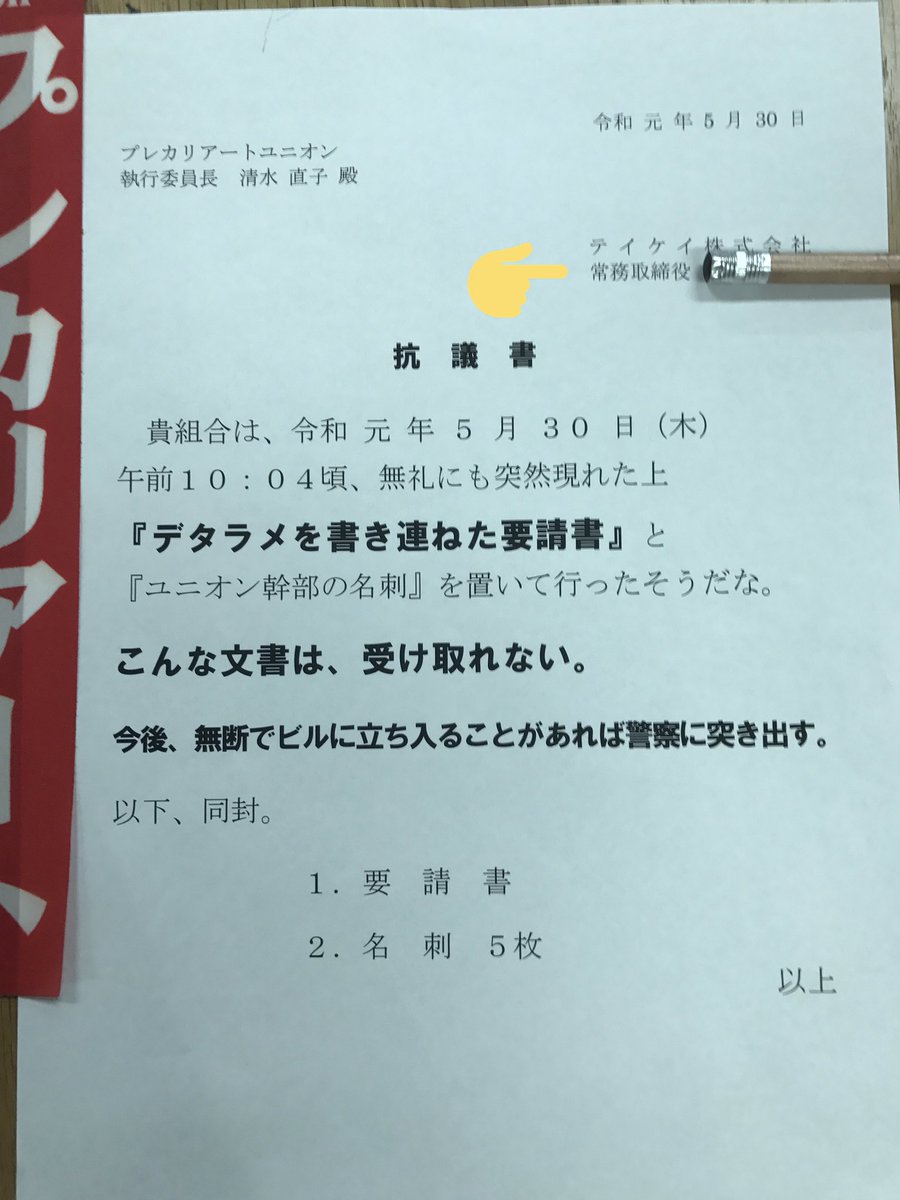 プレカリアート
令和 元 年 5 月 30 日
プレカリアートユニオン
執行委員長 清水 直子 殿
テイケイ株式会社
常務取締役
抗 議 書
貴組合は、令和 元 年 ５ 月 ３０ 日（木）
午前１０：０４頃、無礼にも突然現れた上
『デタラメを書き連ねた要請書』と
『ユニオン幹部の名刺』を置いて行ったそうだな。
こんな文書は、受け取れない。
今後、無断でビルに立ち入ることがあれば警察に突き出す。
以下、同封。
１．要 請 書
２．名 刺 ５枚
以上